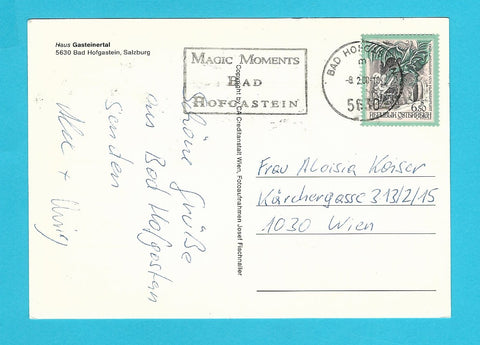 Haus Gasteinertal
5630 Bad Hofgastein, Salzburg
MAGIC MOMENTS
BAD
HOFGASTEIN
BAD HOFGA
-8. 2.00
5630
6.50
REPUBLIK ÖSTERREICH
Copyright by CA Creditanstalt Wien, Fotoaufnahmen Josef Fischnaller
Schöne Grüße
aus Bad Hofgastein
senden
Frau Aloisia Kaiser
Kärchergasse 3-13/2/15
1030 Wien